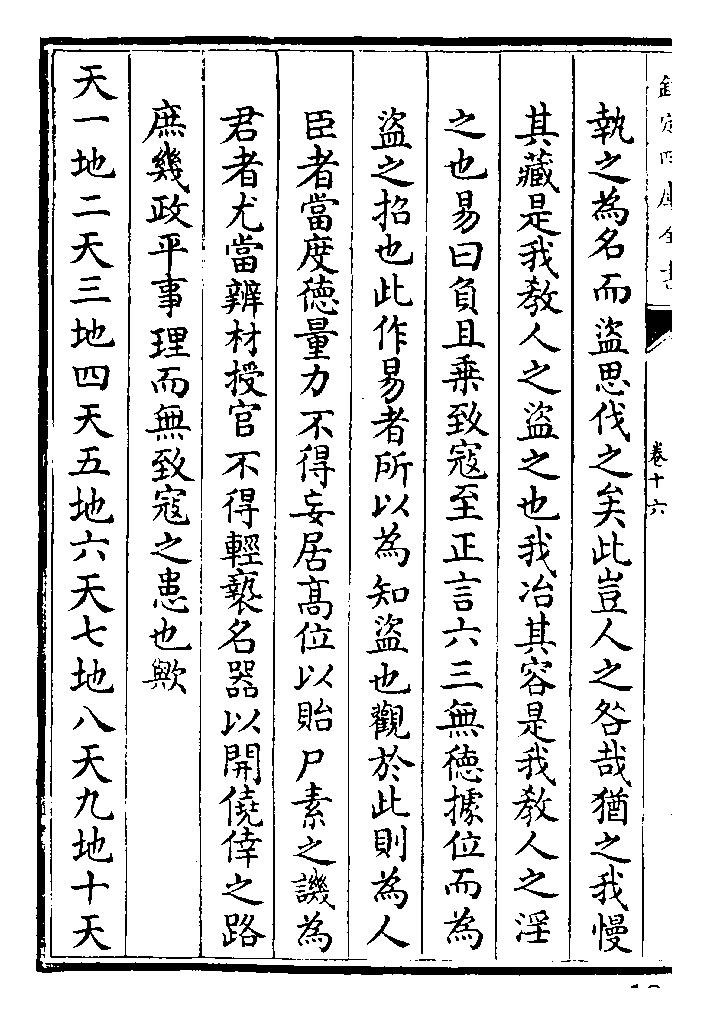 欽定四庫全書
卷十六
執之為名而盜思伐之矣此豈人之咎哉猶之我慢
其藏是我教人之盜之也我冶其容是我教人之淫
之也易曰負且乗致寇至正言六三無德據位而為
盜之招也此作易者所以為知盜也觀於此則為人
臣者當度德量力不得妄居髙位以貽尸素之譏為
君者尤當辨材授官不得輕褻名器以開僥倖之路
庶幾政平事理而無致寇之患也歟
天一地二天三地四天五地六天七地八天九地十天